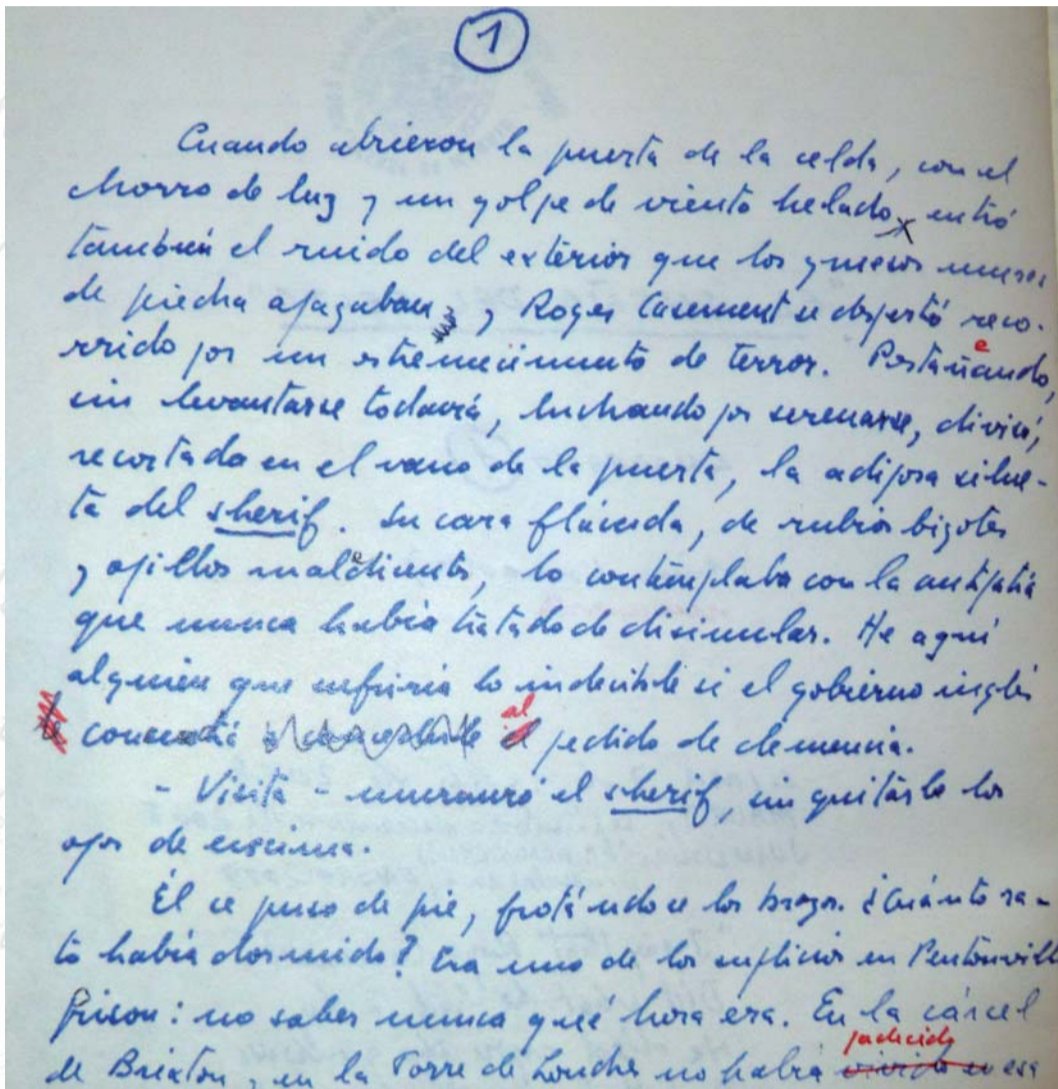 1
Cuando abrieron la puerta de la celda, con el
chorro de luz y un golpe de viento helado, entró
también el ruido del exterior que los gruesos muros
de piedra apagaban y Roger Casement se despertó reco-
rrido por un estremecimiento de terror. Pestañeando,
sin levantarse todavía, luchando por serenarse, divisó,
recortada en el vano de la puerta, la adiposa silue-
ta del sherif. Su cara flácida, de rubios bigotes
y ojillos maledicientes, lo contemplaba con la antipatía
que nunca había tratado de disimular. He aquí
alguien que sufriría lo indecible si el gobierno inglés
al pedido de clemencia.
- Visita - murmuró el sherif, sin quitarle los
ojos de encima.
Él se puso de pie, frotándose los brazos. ¿Cuánto ra-
to había dormido? Era uno de los suplicios en Pentonville
Prison: no saber nunca qué hora era. En la cárcel
padecido
de Brixton, en la Torre de Londres no había vivido esa